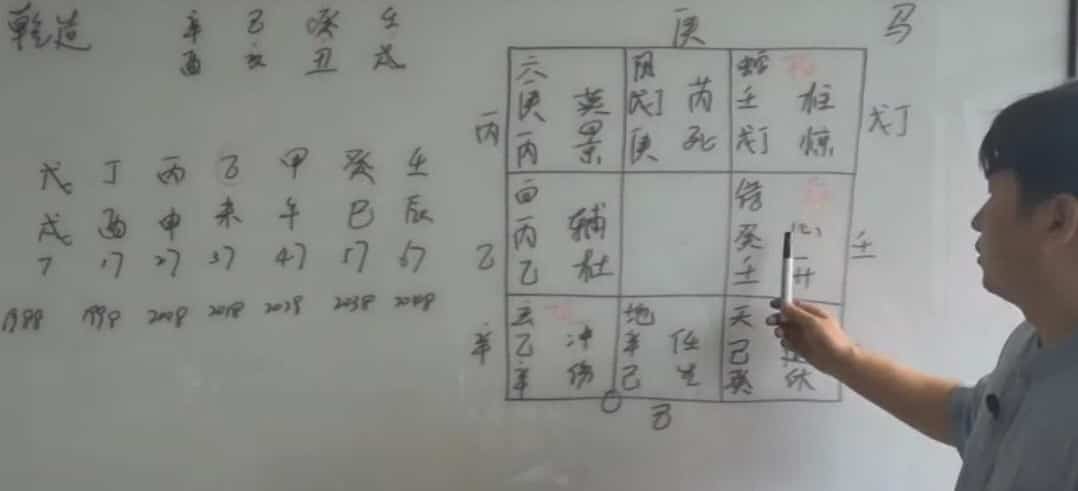 乾造 辛 己 癸 壬
酉 亥 丑 戌
戊 丁 丙 乙 甲 癸 壬
戌 酉 申 未 午 巳 辰
7 17 27 37 47 57 67
1988 1998 2008 2018 2028 2038 2048
庚 马
六 阴 蛇
丙 庚 英 戊丁 芮 壬 柱 戊丁
丙 景 庚 死 戊丁 惊
白
丙 辅 癸 心
乙 乙 杜 壬 开 壬
玄 地 天
辛 乙 冲 辛 任 己
辛 伤 己 生 癸 休